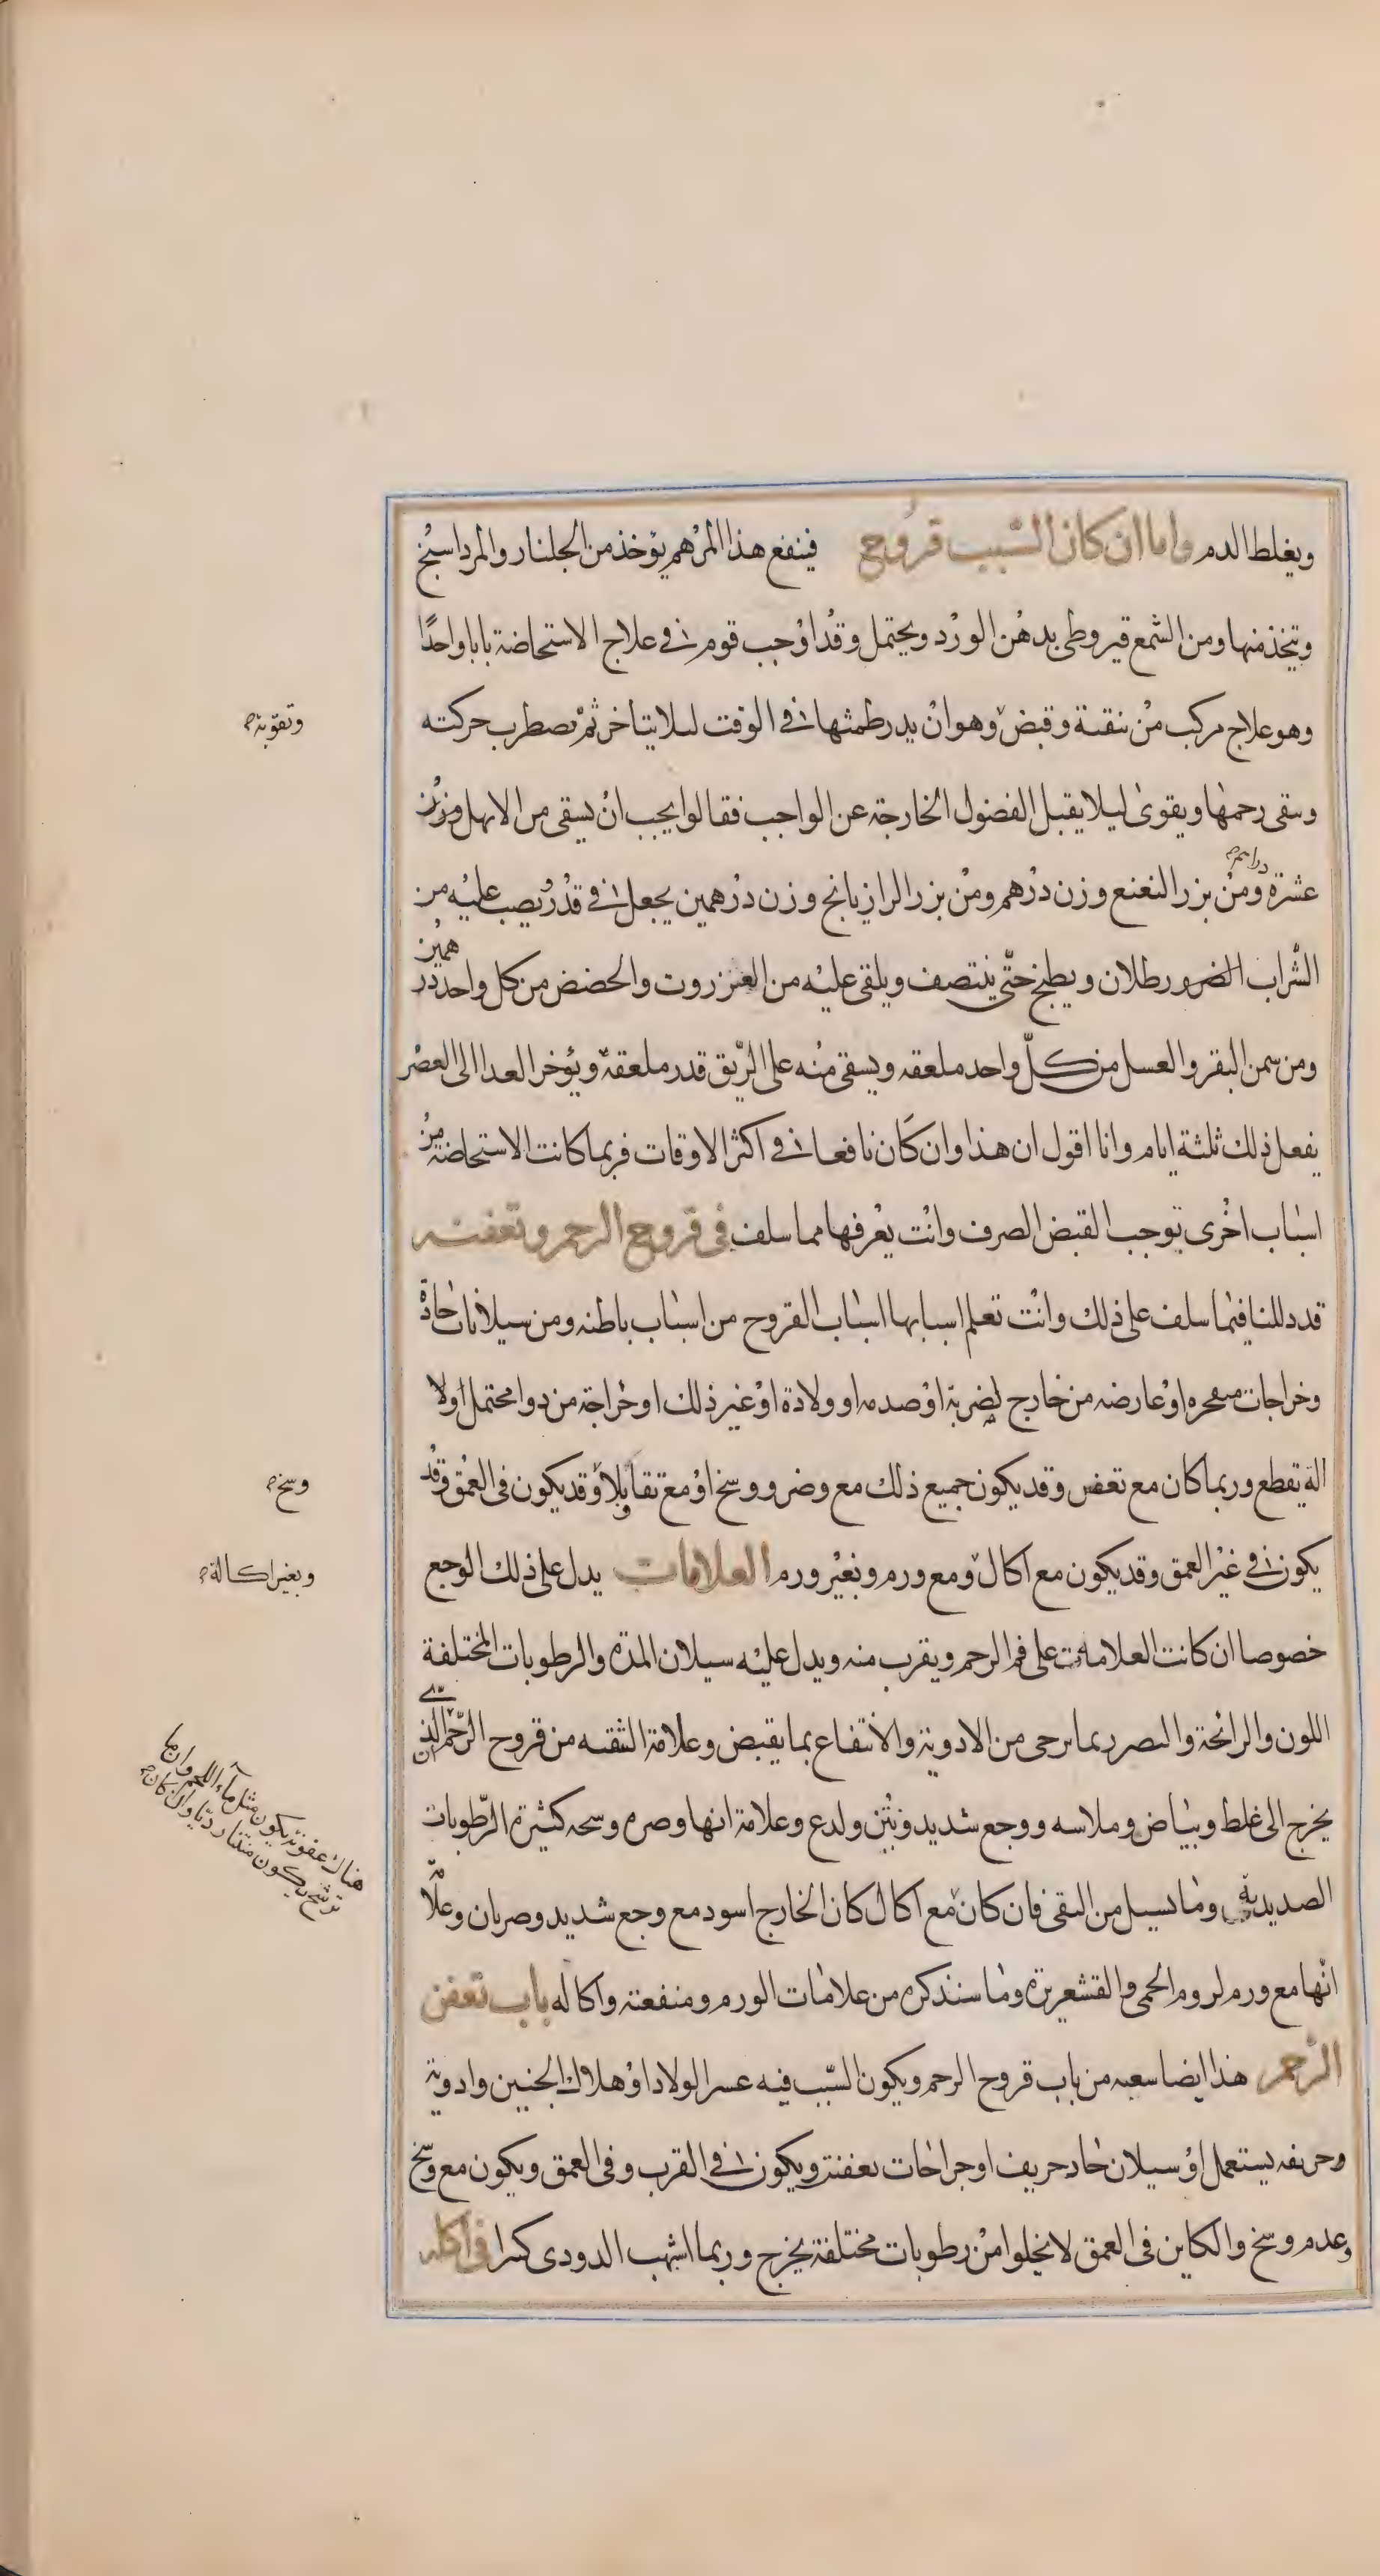 ويغلط الدم واما ان كان السبب قروح فينفع هذا المرهم يؤخذ من الجلنار والمرداسنج
وتيخذ منها ومن الشمع قيروطى بدهن الورد ويحتمل وقد اوجب قوم فى علاج الاستحاضة بابا واحدًا
وهو علاج مركب من تنقية وقبض وهو ان يدر طمثها فى الوقت ليلا يتاخر ثم تضطرب حركته
وتقوية
وينقى رحمها ويقوى ليلا يقبل الفضول الخارجة عن الواجب فقالوا يجب ان يسقى من الابهل وزن
عشرة دراهم ومن بزر النعنع وزن درهم ومن بزر الرازيانج وزن درهمين يجعل فى قدر ويصب عليه من
الشراب الصرف رطلان ويطبخ حتى ينتصف ويلقى عليه من العنزروت والحضض من كل واحد درهمين
ومن سمن البقر والعسل من كل واحد ملعقه ويسقى منه على الريق قدر ملعقة ويؤخر العدا الى العصر
يفعل ذلك ثلثة ايام وانا اقول ان هذا وان كان نافعا فى اكثر الاوقات فربما كانت الاستحاضة من
اسباب اخرى توجب القبض الصرف وانت يعرفها مما سلف فى قروح الرحم وتعفنه
قد دللنا فيما سلف على ذلك وانت تعلم اسبابها اسباب القروح من اسباب باطنه ومن سيلانات حادة
وخراجات متفجره او عارضه من خارج لضربة او صدمه او ولادة او غير ذلك او خراجة من دوا محتمل اولا
الة يقطع وربما كان مع تعفن وقد يكون جميع ذلك مع وضر ووسخ او مع نقا وبلا وقد يكون فى العمق وقد
وسخ
يكون فى غير العمق وقد يكون مع اكال ومع ورم وبغير ورم العلامات يدل على ذلك الوجع
وبغير اكالة
خصوصا ان كانت العلامات على فم الرحم ويقرب منه ويدل عليه سيلان المدة والرطوبات المختلفة
اللون والرائحة والتضرر بما يرخى من الادوية والانتفاع بما يقبض وعلامة النقية من قروح الرحم ان الذى
يخرج الى غلط وبياض وملاسه ووجع شديد ونتن ولدع وعلامة انها وضره وسخه كثيرة الرطوبات
الصديدية وما يسيل من النقى فان كان مع اكال كان الخارج اسود مع وجع شديد وضربان وعلامة
هناك عفونة يكون مثل ماء اللحم وان ها
ترشح يكون منتنا رديا وان كان
انها مع ورم لزوم الحمى والقشعريرة وما سنذكره من علامات الورم ومنفعته واكاله باب تعفن
الرحم هذا ايضا شعبه من باب قروح الرحم ويكون السبب فيه عسر الولاد او هلاك الجنين وادوية
وحريفه يستعمل او سيلان حاد حريف او جراحات تعفنت ويكون فى القرب وفى العمق ويكون مع وسخ
وعدم وسخ والكاين فى العمق لا يخلوا من رطوبات مختلفة يخرج وربما اشبهت الدردى كثيرا فى اكله